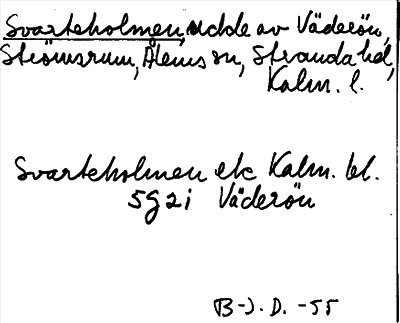 Svarteholmen, udde av Väderön,
Strömsrum, Ålems sn, Stranda hd,
Kalm. l.
Svarteholmen ek Kalm. bl.
5g2i Väderön
B-J. D. -55